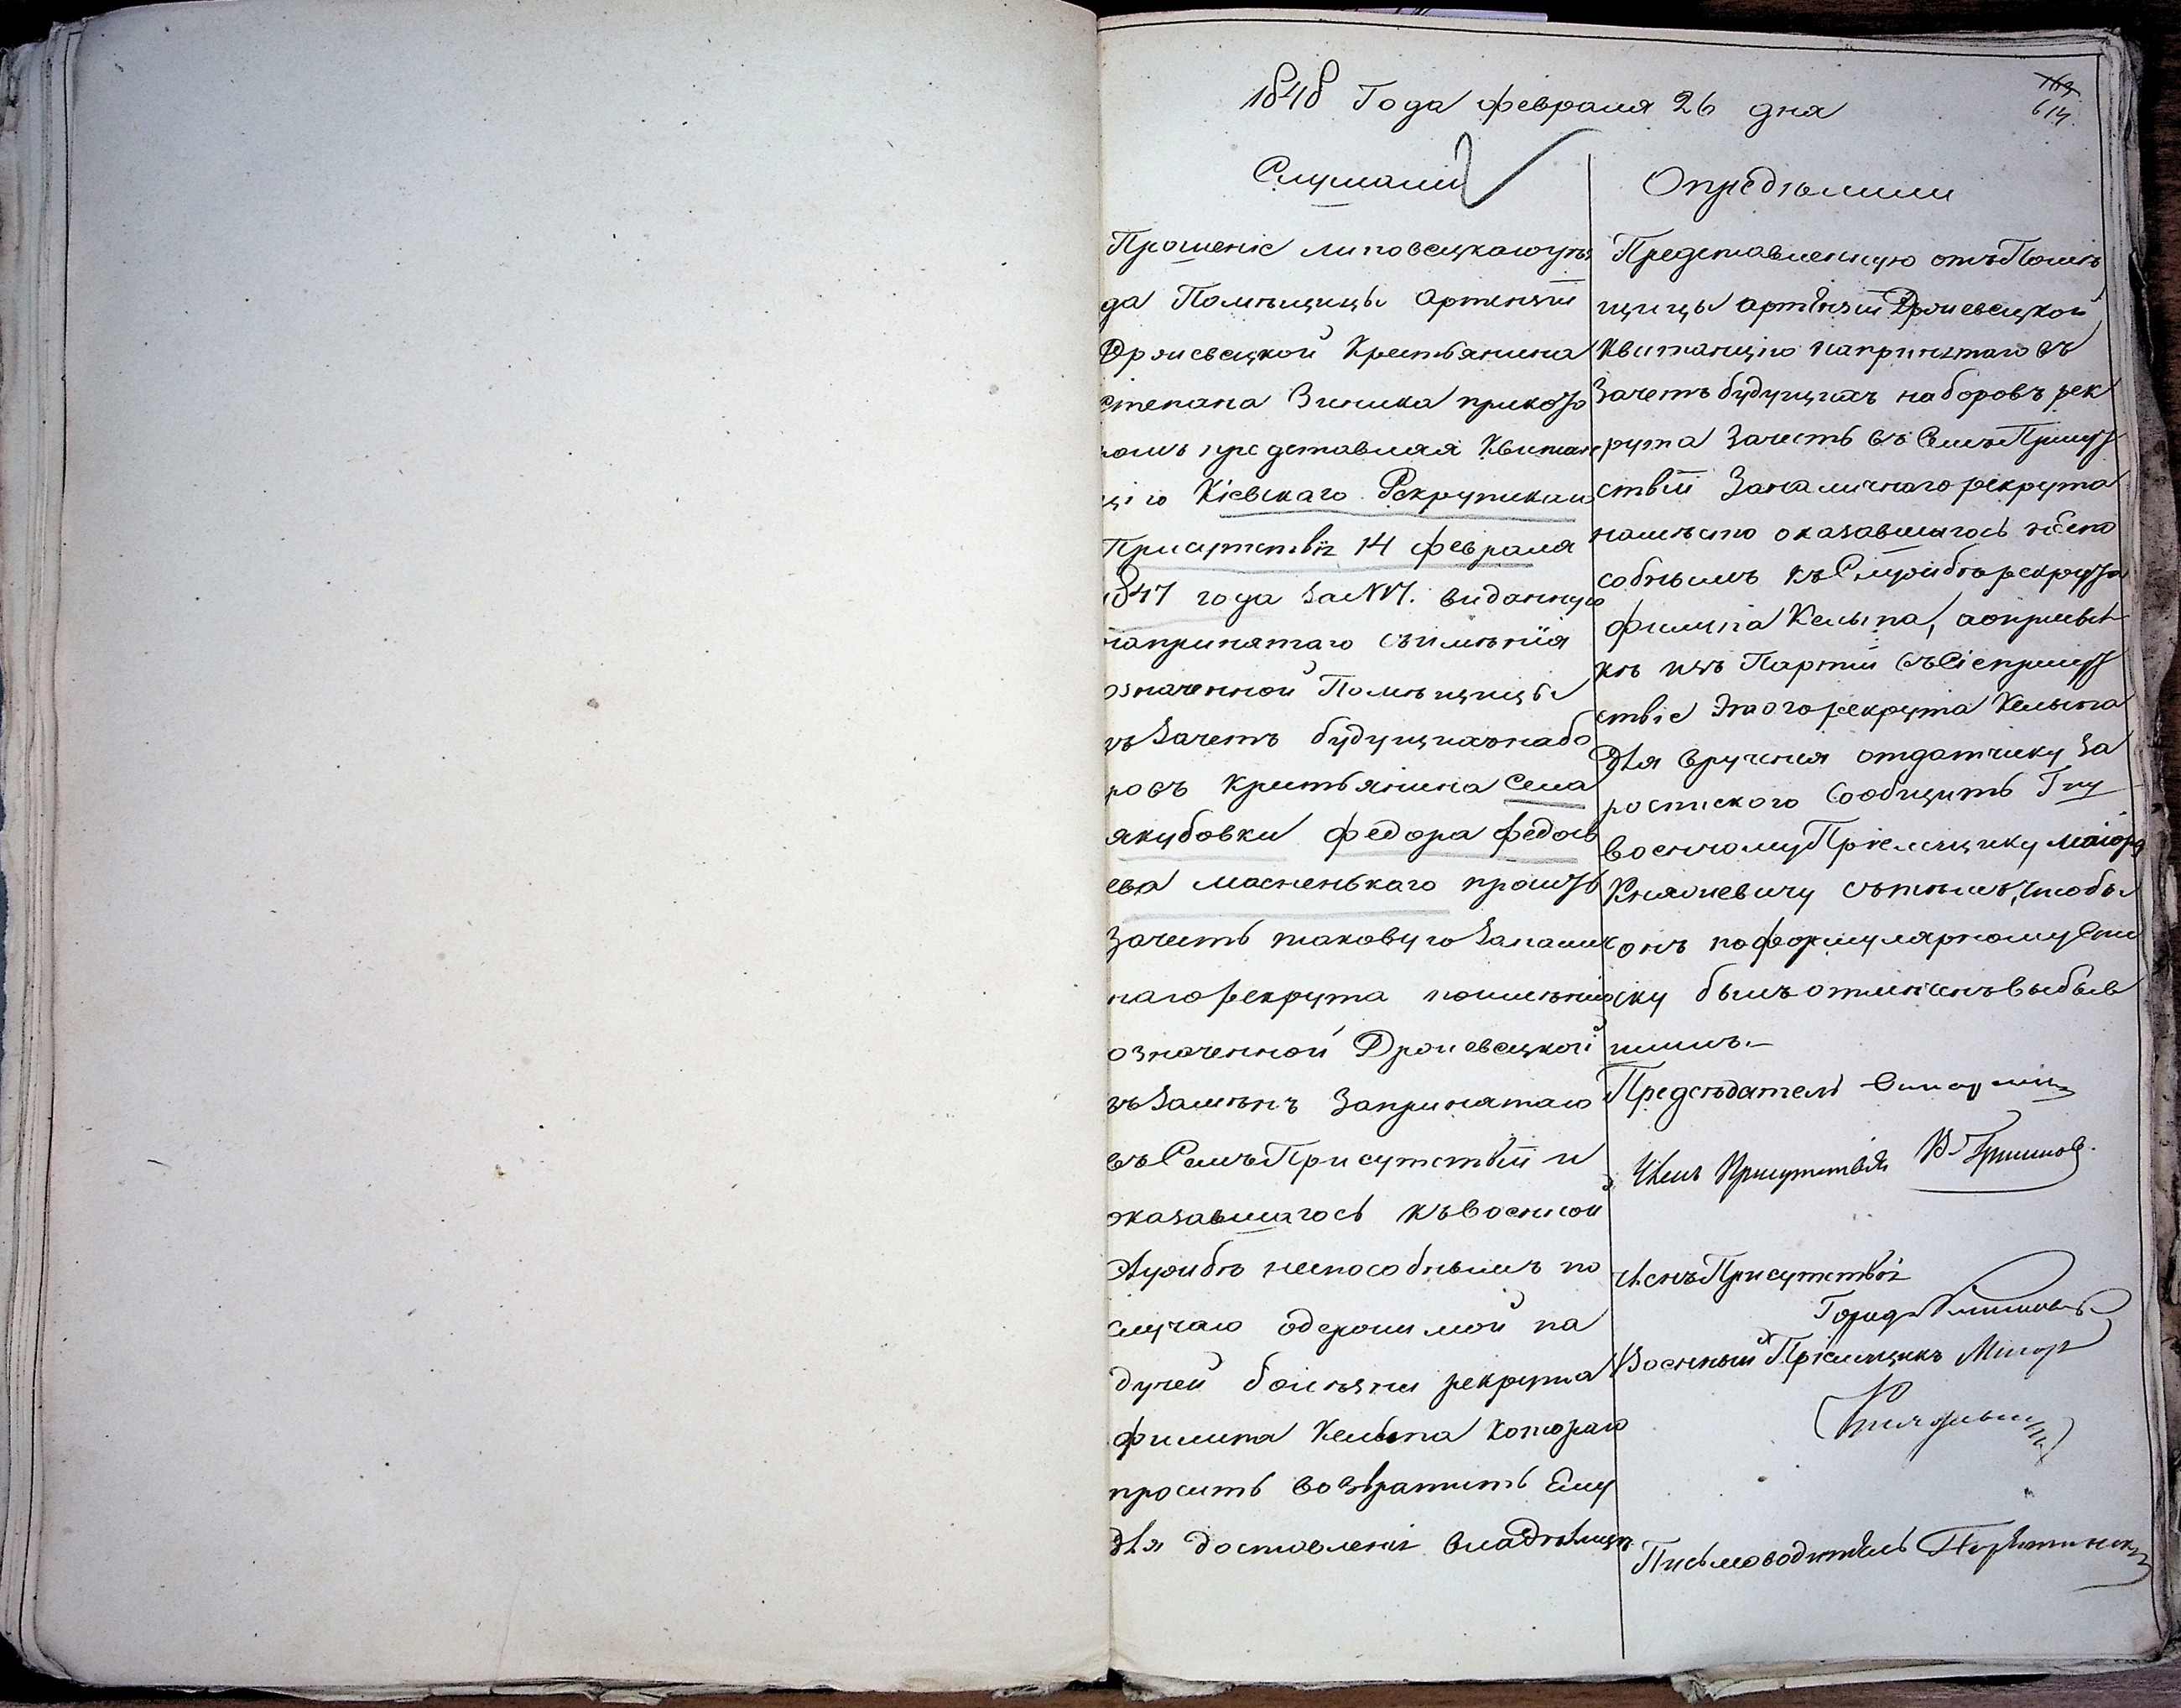 1848 Года февраля 26 дня
614
Слушали
Прошеніе липовецкаго уѣз
да Помѣщицы Артензіи
Дрżевецкой Крестьянина
степана Зиника при кото
ромъ представляя Квитан
цію Кіевскаго Рекрутскаго
Присутствія 14 февраля
1847 года за № 17. виданную
напринятаго съимѣнія
означенной Помѣщицы
въ Зачетъ будущихъ набо
ровъ крестьянина Села
якубовки федора федось
ева масненькаго проситъ
Зачесть таковую Заналич
наго рекрута поимѣнію
означенной Држевецкой
въ Замѣнъ Запринятаго
въ Семъ Присутствіи и
оказавшагось къ военной
службѣ неспособнымъ по
случаю одержимой па
дучей болѣзни рекрута
филипа Кельпа котораго
проситъ возвратить Ему
для доставленія владѣлицѣ.
Опредѣлили
Представленную отъ Помѣ
щицы артензіи Држевецкой
Квитанцію напринятаго въ
Зачетъ будущихъ наборовъ рек
рута Зачесть въ Семъ Присут
ствіи Заналичнаго рекрута
намѣсто оказавшагось неспо
собнымъ къ Службѣ рекрута
филипа Кельпа, а оприсыл
кѣ изъ Партіи въ Сіе присут
ствіе Этого рекрута Кельпа
для врученія отдатчику За
роспискою Сообщить Гну
военному Пріемщику маіору
Княжевичу сътѣмъ, чтобы
онъ поформулярному Спи
ску былъ отмѣченъ выбыв
шимъ.-
Предсѣдатель
Членъ Присутствія
Членъ Присутствія
Военный Пріемщикъ Маіоръ
Княжевичъ
Письмоводитель